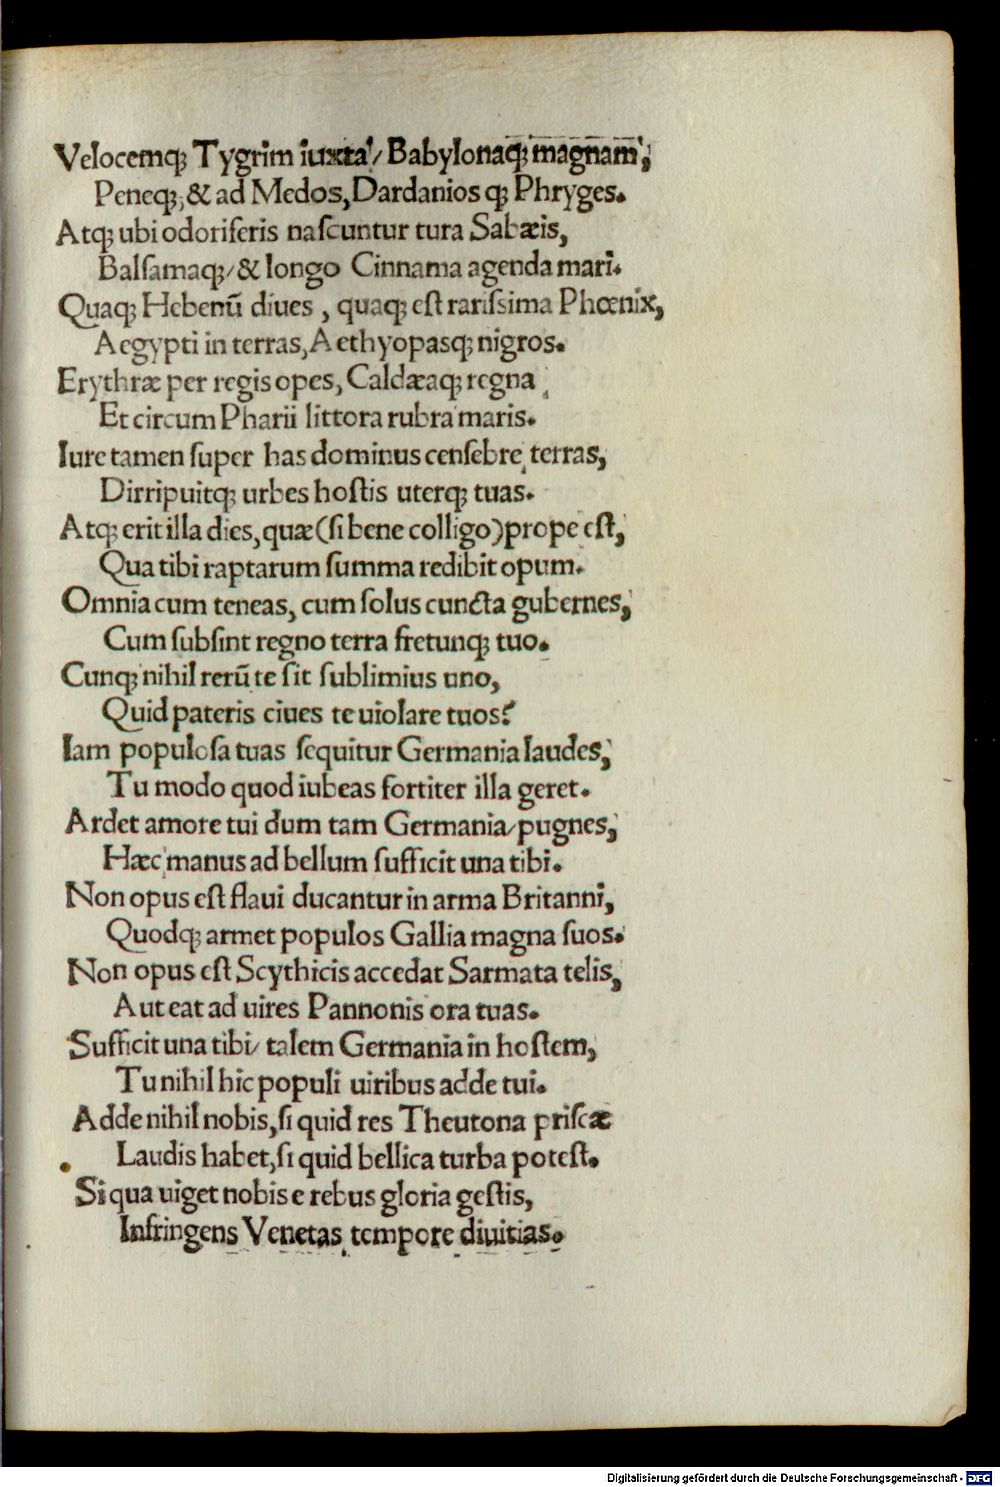 Velocemq; Tygrim iuxta/ Babylonaq; magnam,
Peneq;, & ad Medos, Dardanios q; Phryges.
Atq; ubi odoriferis naſcuntur tura Sabæis,
Balſamaq;/ & longo Cinnama agenda mari.
Quaq; Hebenū diues , quaq; eſt rariſsima Phœnix,
Aegypti in terras, Aethyopasq; nigros.
Erythræ per regis opes, Caldæaq; regna ,
Et circum Pharii littora rubra maris.
Iure tamen ſuper has dominus cenſebre, terras,
Dirripuitq; urbes hoſtis uterq; tuas.
Atq; erit illa dies, quæ (ſi bene colligo) prope eſt,
Qua tibi raptarum ſumma redibit opum.
Omnia cum teneas, cum ſolus cuncta gubernes,
Cum ſubſint regno terra fretunq; tuo.
Cunq; nihil rerū te ſit ſublimius uno,
Quid pateris ciues te uiolare tuos?
Iam populoſa tuas ſequitur Germania laudes,
Tu modo quod iubeas fortiter illa geret.
Ardet amore tui dum tam Germania/ pugnes,
Hæc manus ad bellum ſufficit una tibi.
Non opus eſt flaui ducantur in arma Britanni,
Quodq; armet populos Gallia magna ſuos.
Non opus eſt Scythicis accedat Sarmata telis,
Aut eat ad uires Pannonis ora tuas.
Sufficit una tibi/ talem Germania in hoſtem,
Tu nihil hic populi uiribus adde tui.
Adde nihil nobis, ſi quid res Theutona priſcæ
Laudis habet, ſi quid bellica turba poteſt.
Si qua uiget nobis e rebus gloria geſtis,
Infringens Venetas, tempore diuitias.
Digitalisierung gefördert durch die Deutsche Forschungsgemeinschaft - DFG